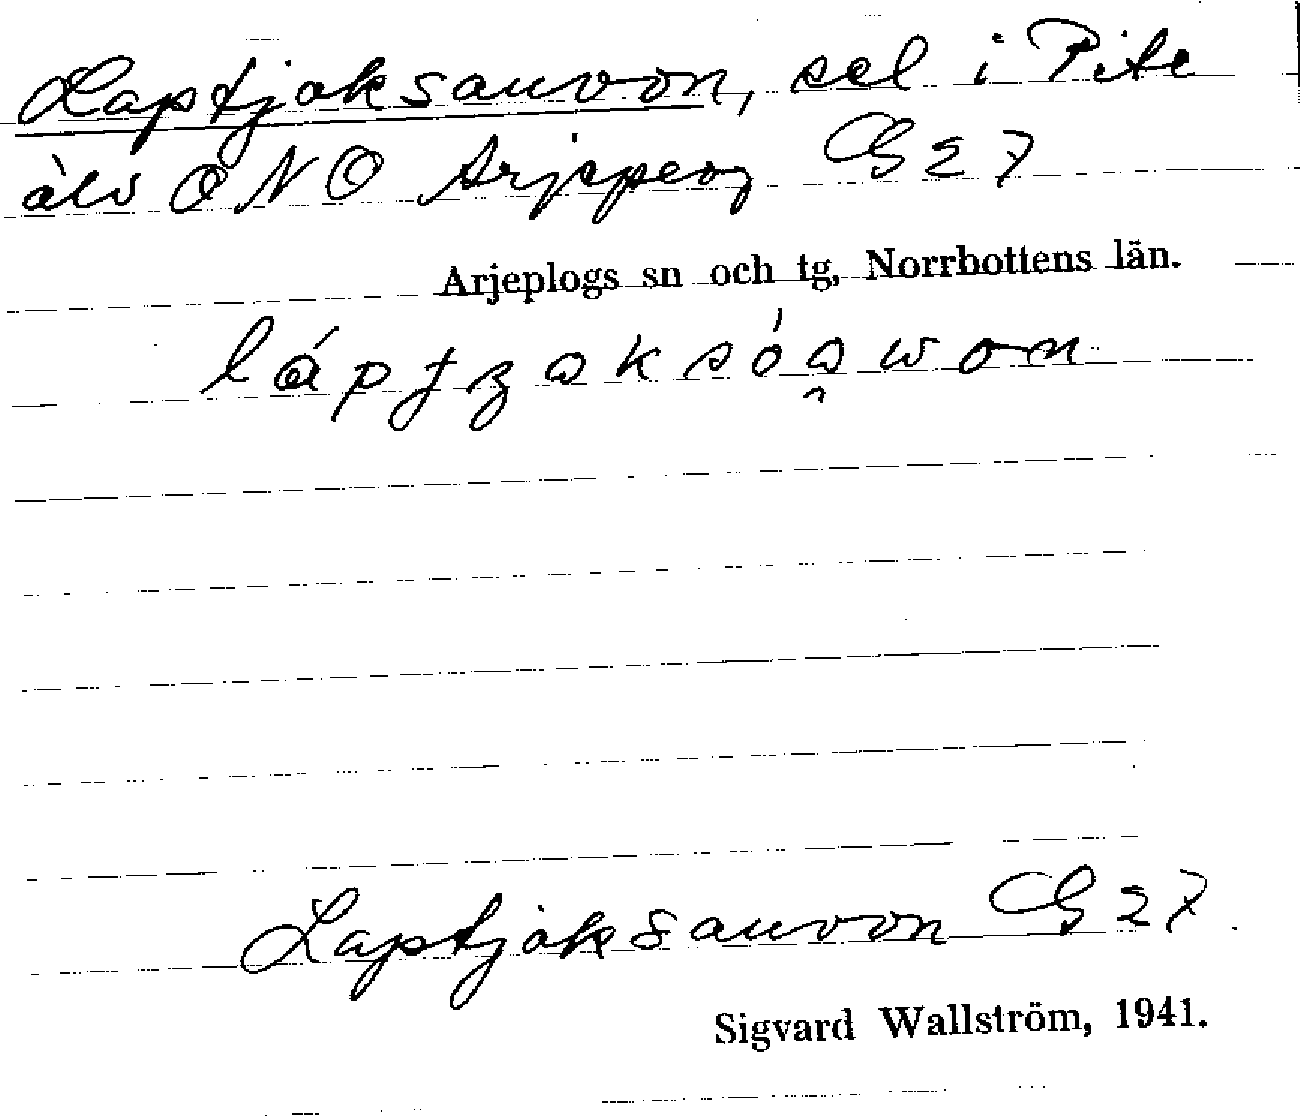 Laptjaksauvon, sel i Pite
älv ONO Arjeplog GS 27
Arjeplogs sn och tg, Norrbottens län.
Laptjaksauvon GS 27.
Sigvard Wallström, 1941.